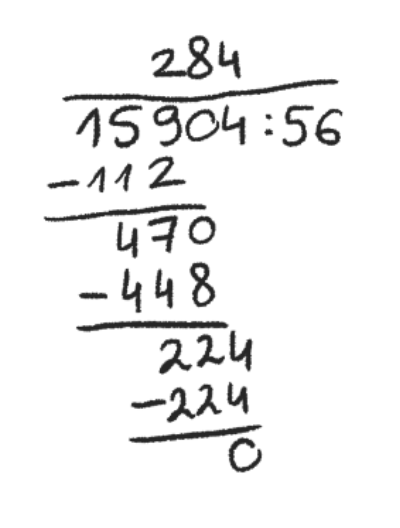 284
15904:56
-112
470
-448
224
-224
0